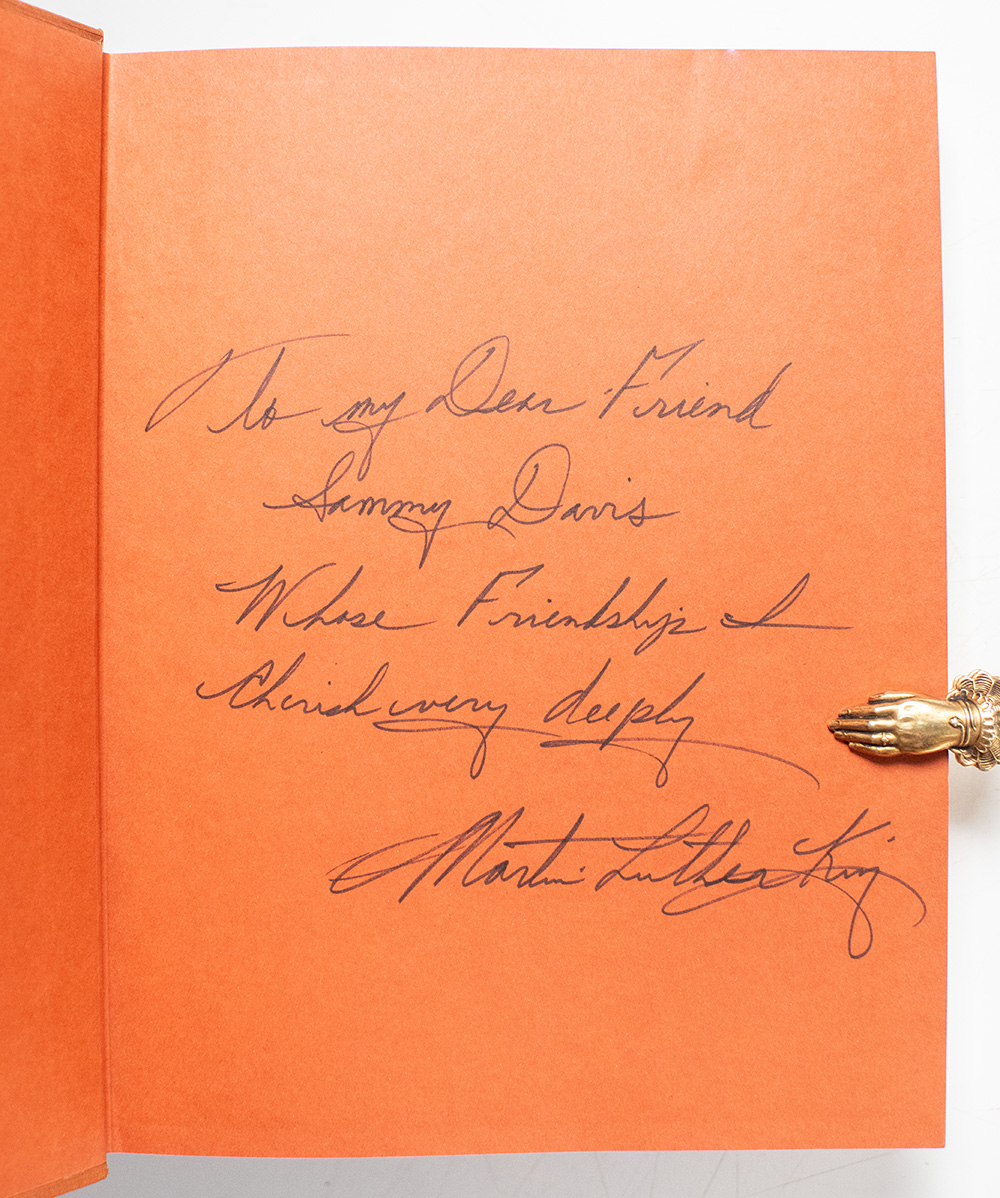 To my Dear Friend
Sammy Davis
Whose Friendship I
Cherish very deeply
Martin Luther King